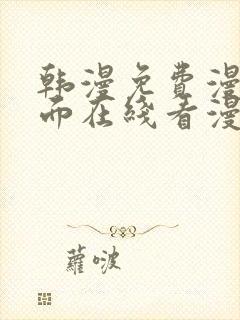 韩漫免费漫
而在线看漫
蘿啵